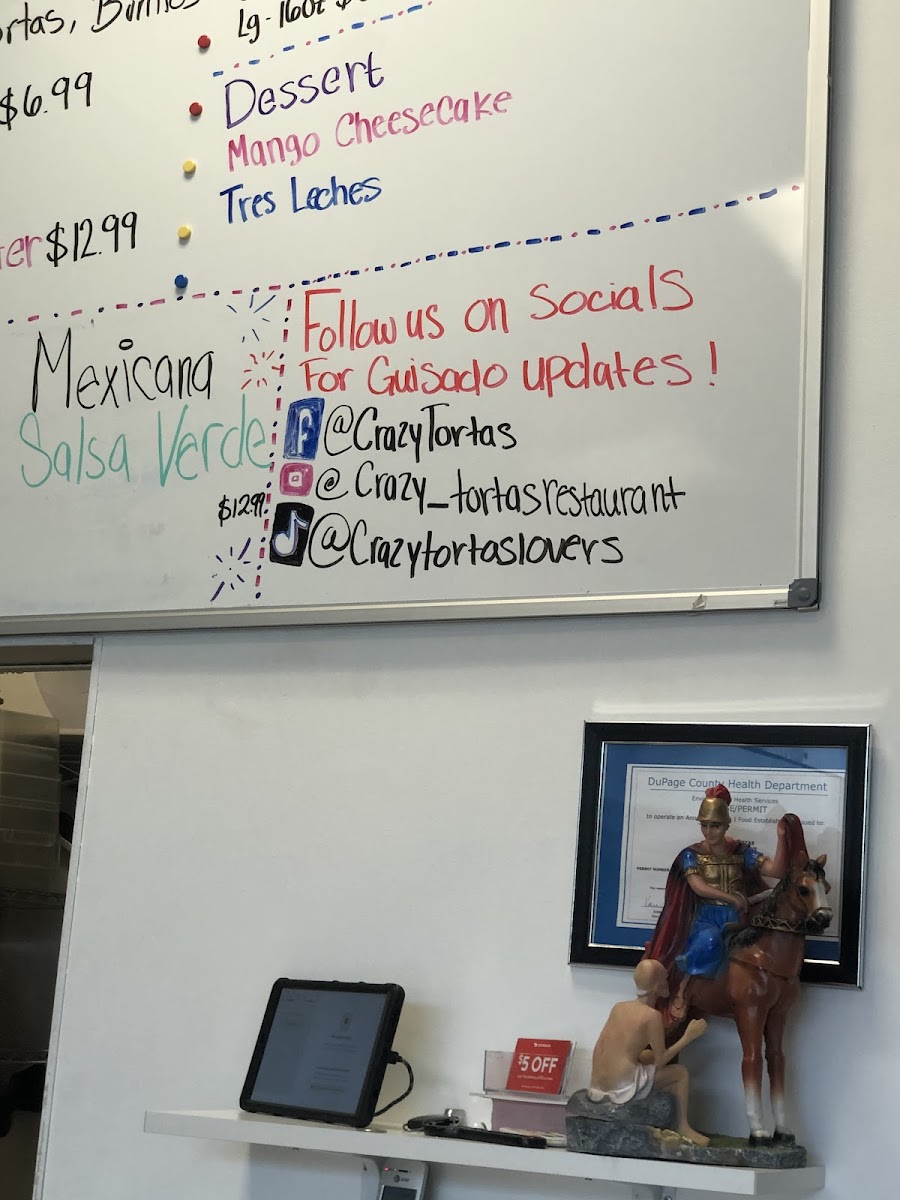 $6.99
Lg - 16oz $
Dessert
Mango Cheesecake
Tres Leches
$12.99
Mexicana
Salsa Verde
$12.99
Follow us on Socials
For Guisado updates!
f @CrazyTortas
@Crazy_tortasrestaurant
@Crazytortaslovers
DuPage County Health Department
Health Services
E/PERMIT
to operate an
Food
PERMIT NUMBER
$5 OFF